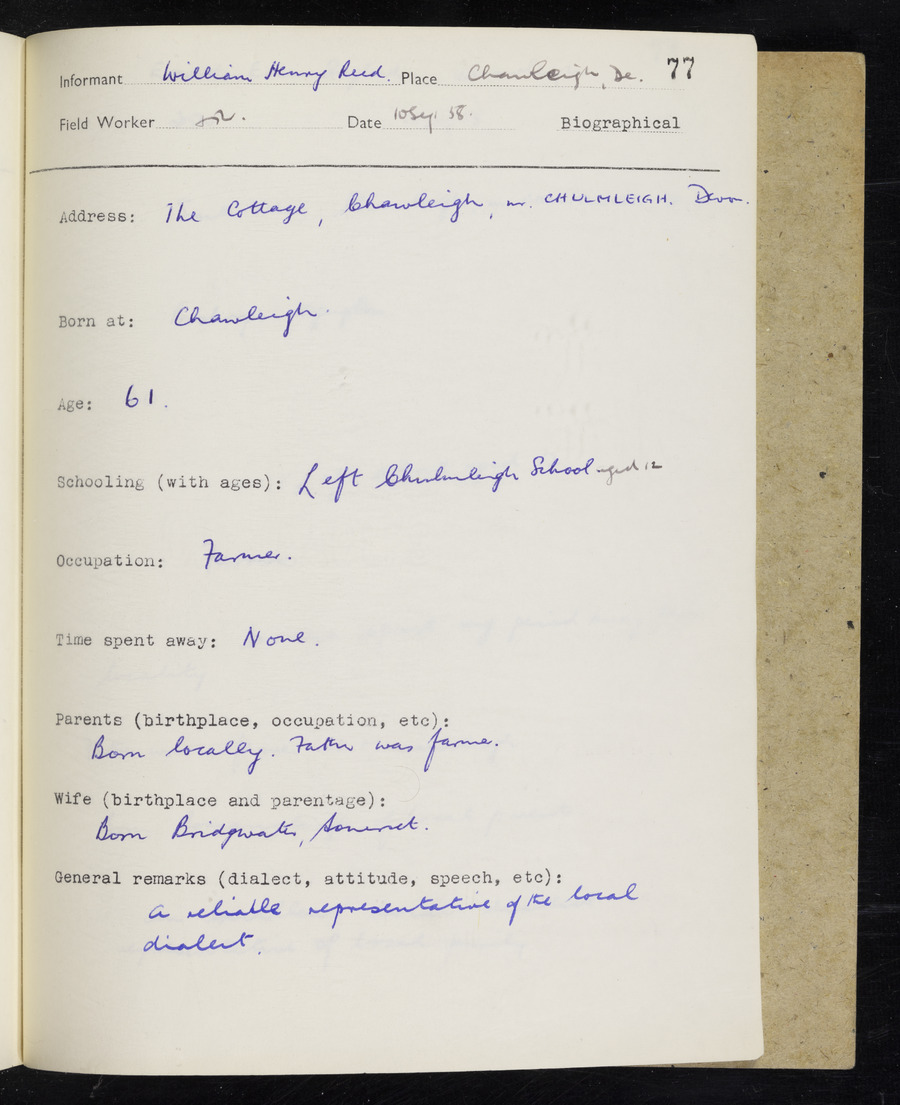 Informant William Henry Reed. Place Chawleigh, De. 77
Field Worker Date 10 Sep. 58. Biographical
Address: The Cottage, Chawleigh, nr. CHULMLEIGH. Devon.
Born at: Chawleigh.
Age: 61.
Schooling (with ages): Left Chulmleigh School aged 12
Occupation: Farmer.
Time spent away: None.
Parents (birthplace, occupation, etc):
Born locally. Father was farmer.
Wife (birthplace and parentage):
Born Bridgwater, Somerset.
General remarks (dialect, attitude, speech, etc):
A reliable representative of the local
dialect.